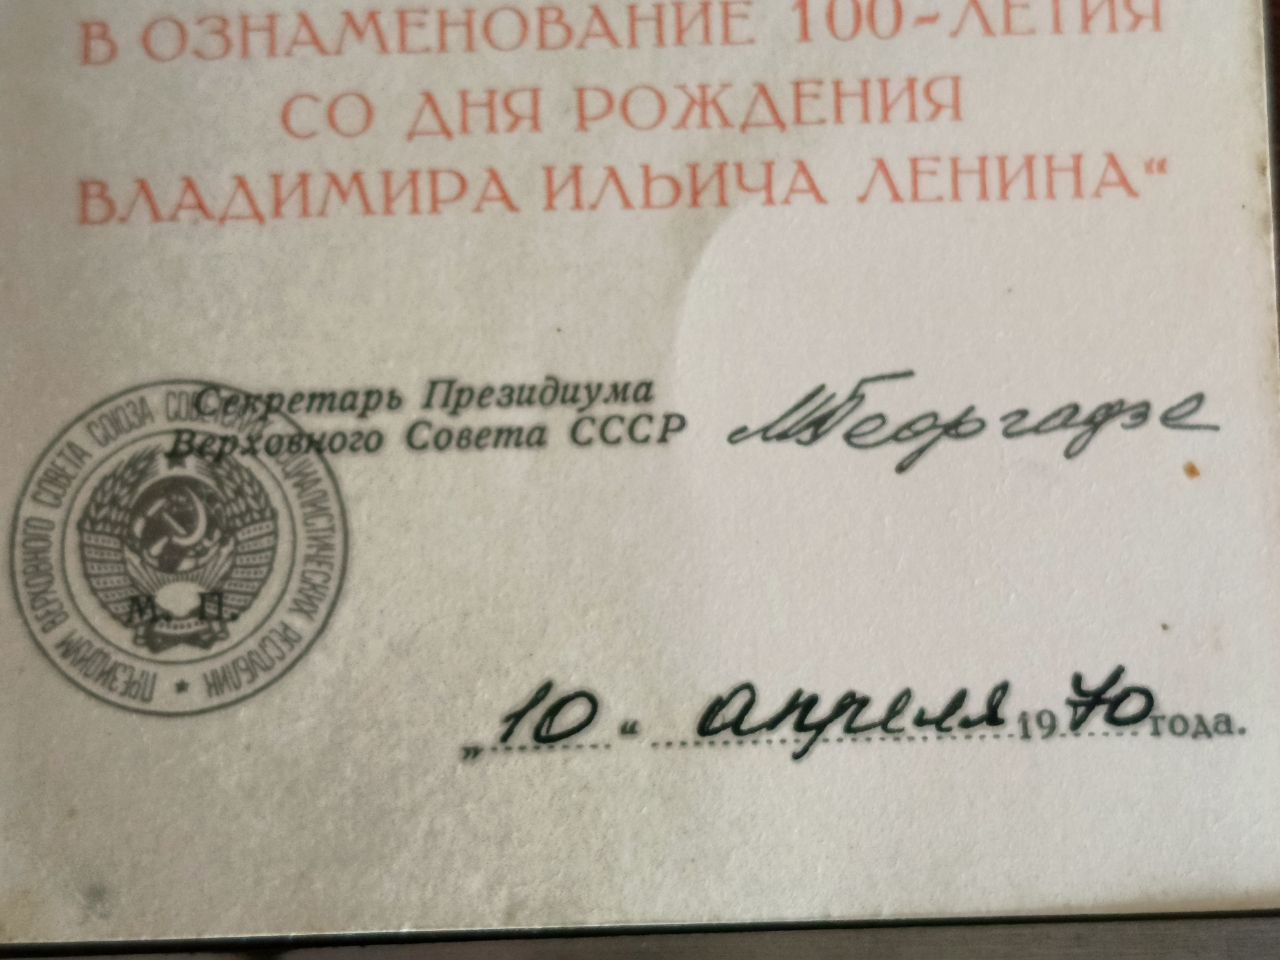 В ОЗНАМЕНОВАНИЕ 100-ЛЕТИЯ
СО ДНЯ РОЖДЕНИЯ
ВЛАДИМИРА ИЛЬИЧА ЛЕНИНА“
Секретарь Президиума
Верховного Совета СССР
МГеоргадзе
ПРЕЗИДИУМ ВЕРХОВНОГО СОВЕТА СОЮЗА СОВЕТСКИХ СОЦИАЛИСТИЧЕСКИХ РЕСПУБЛИК
М. П.
„10“ апреля 1970 года.